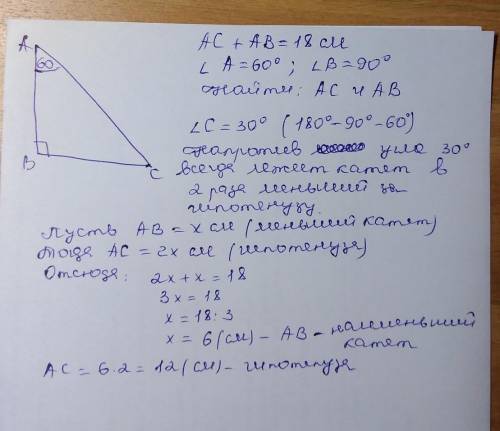 A
60
B
C
AC + AB = 18 см
∠ A = 60° ; ∠ B = 90°
Найти: AC и AB
∠ C = 30° (180° - 90° - 60°)
Напротив угла 30°
всегда лежит катет в
2 раза меньший за
гипотенузу.
Пусть AB = x см (меньший катет)
Тогда AC = 2x см (гипотенуза)
Отсюда: 2x + x = 18
3x = 18
x = 18 : 3
x = 6 (см) - AB - наименьший
катет
AC = 6 · 2 = 12 (см) - гипотенуза